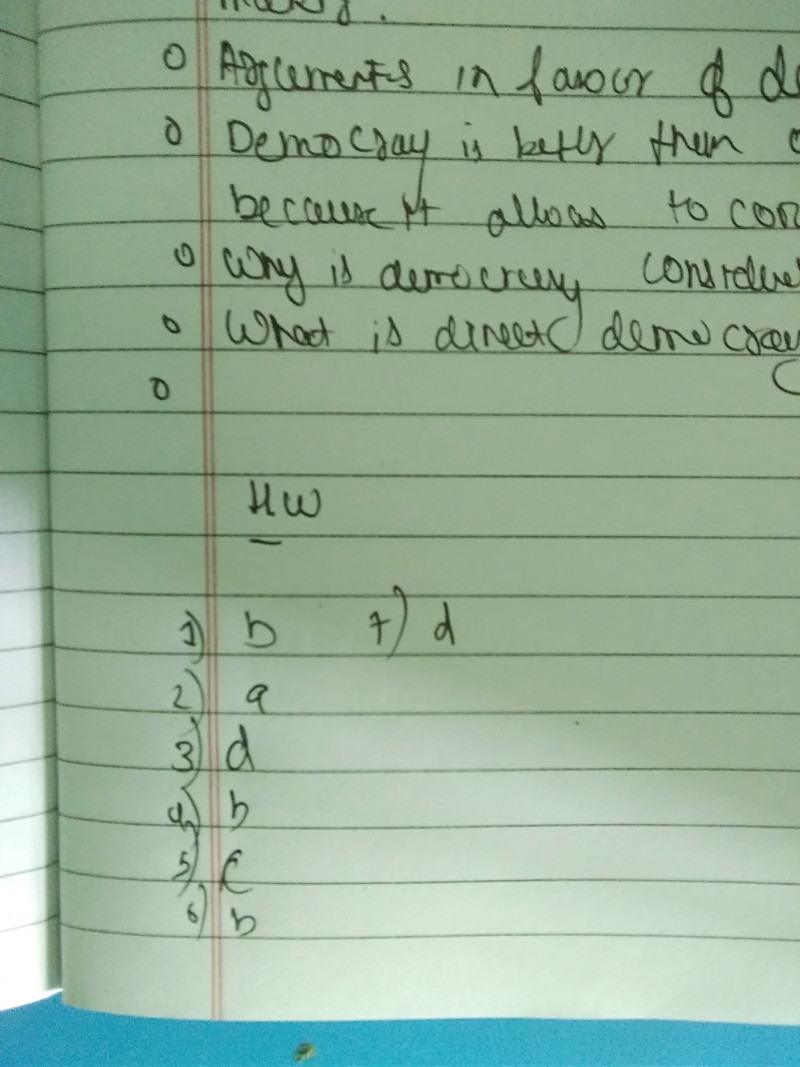 o Arguements in favour of de
o Democray is better them o
because it allows to con
o Why is democracy considere
o What is direct democray
o
HW
1) b 7) d
2) a
3) d
4) b
5) c
6) b